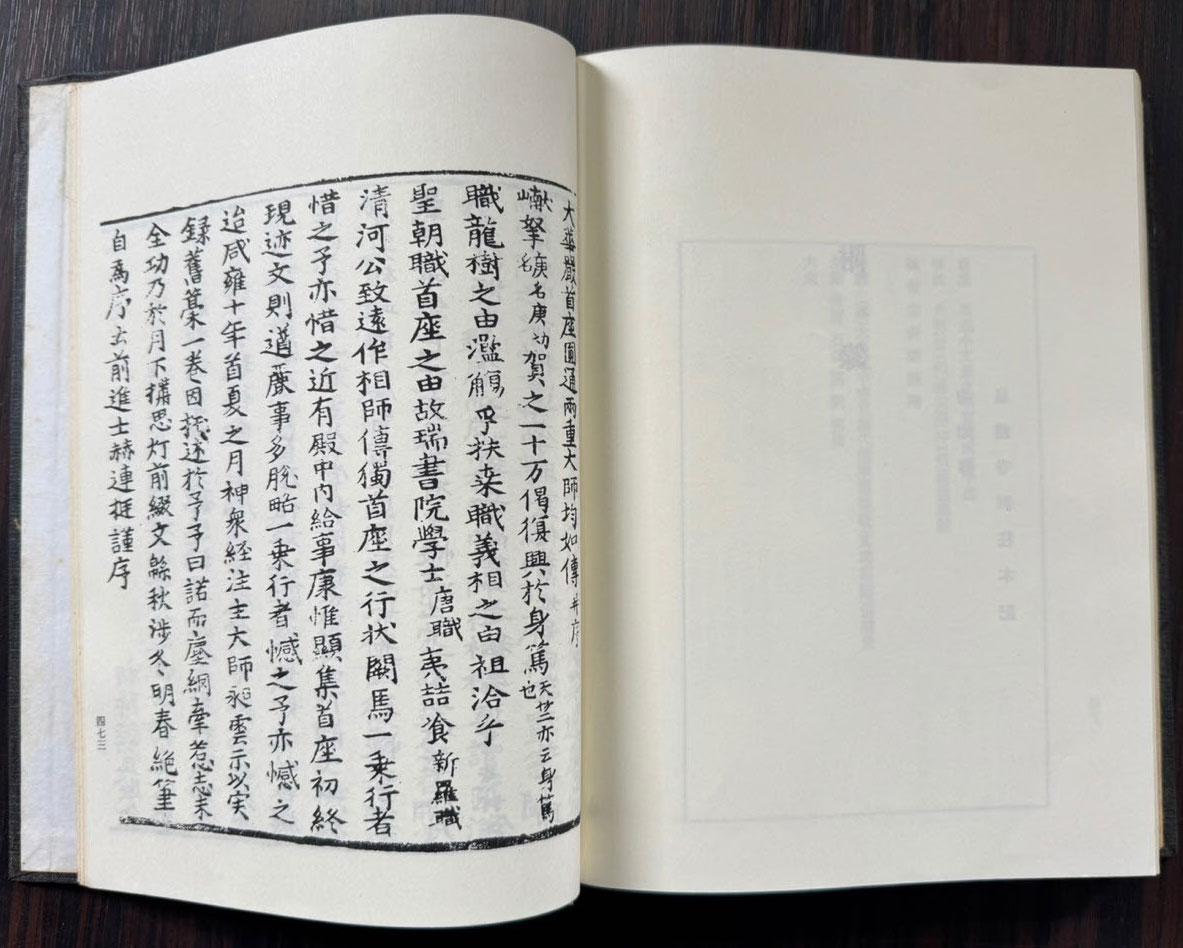 大華嚴首座圓通兩重大師均如傳并序
拏名庚幼賀之一十万偈復興於身篤天竺亦云身篤也
職龍樹之由濫觴乎扶桒職義相之由祖洽乎
聖朝職首座之由故瑞書院學士唐職夷喆飡新羅職
清河公致遠作相師傳獨首座之行狀闕焉一乗行者
惜之予亦惜之近有殿中内給事康惟顯集首座初終
現迹文則遒麗事多脫略一乗行者憾之予亦憾之
迨咸雍十年首夏之月神衆経注主大師昶雲示以实
録舊藁一卷因托述於予予曰諾而塵網牽惹志未
全功乃於月下構思灯前綴文緜秋涉冬明春絶筆
自爲序云前進士赫連挺謹序
四七三